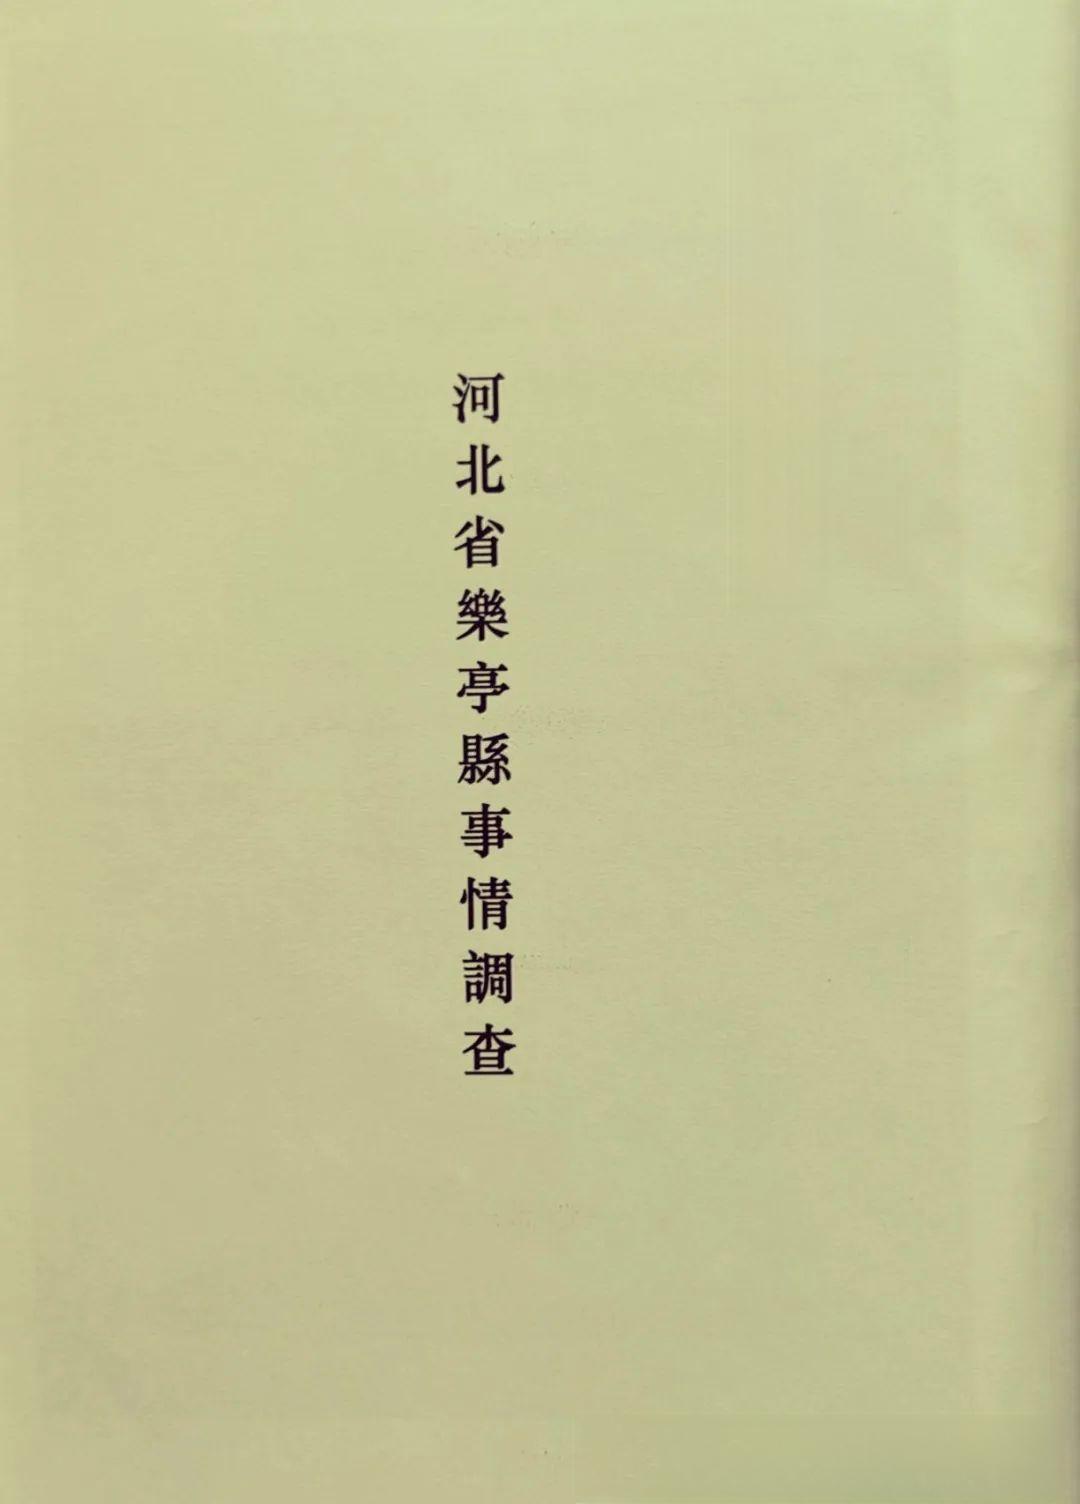 河北省樂亭縣事情調查